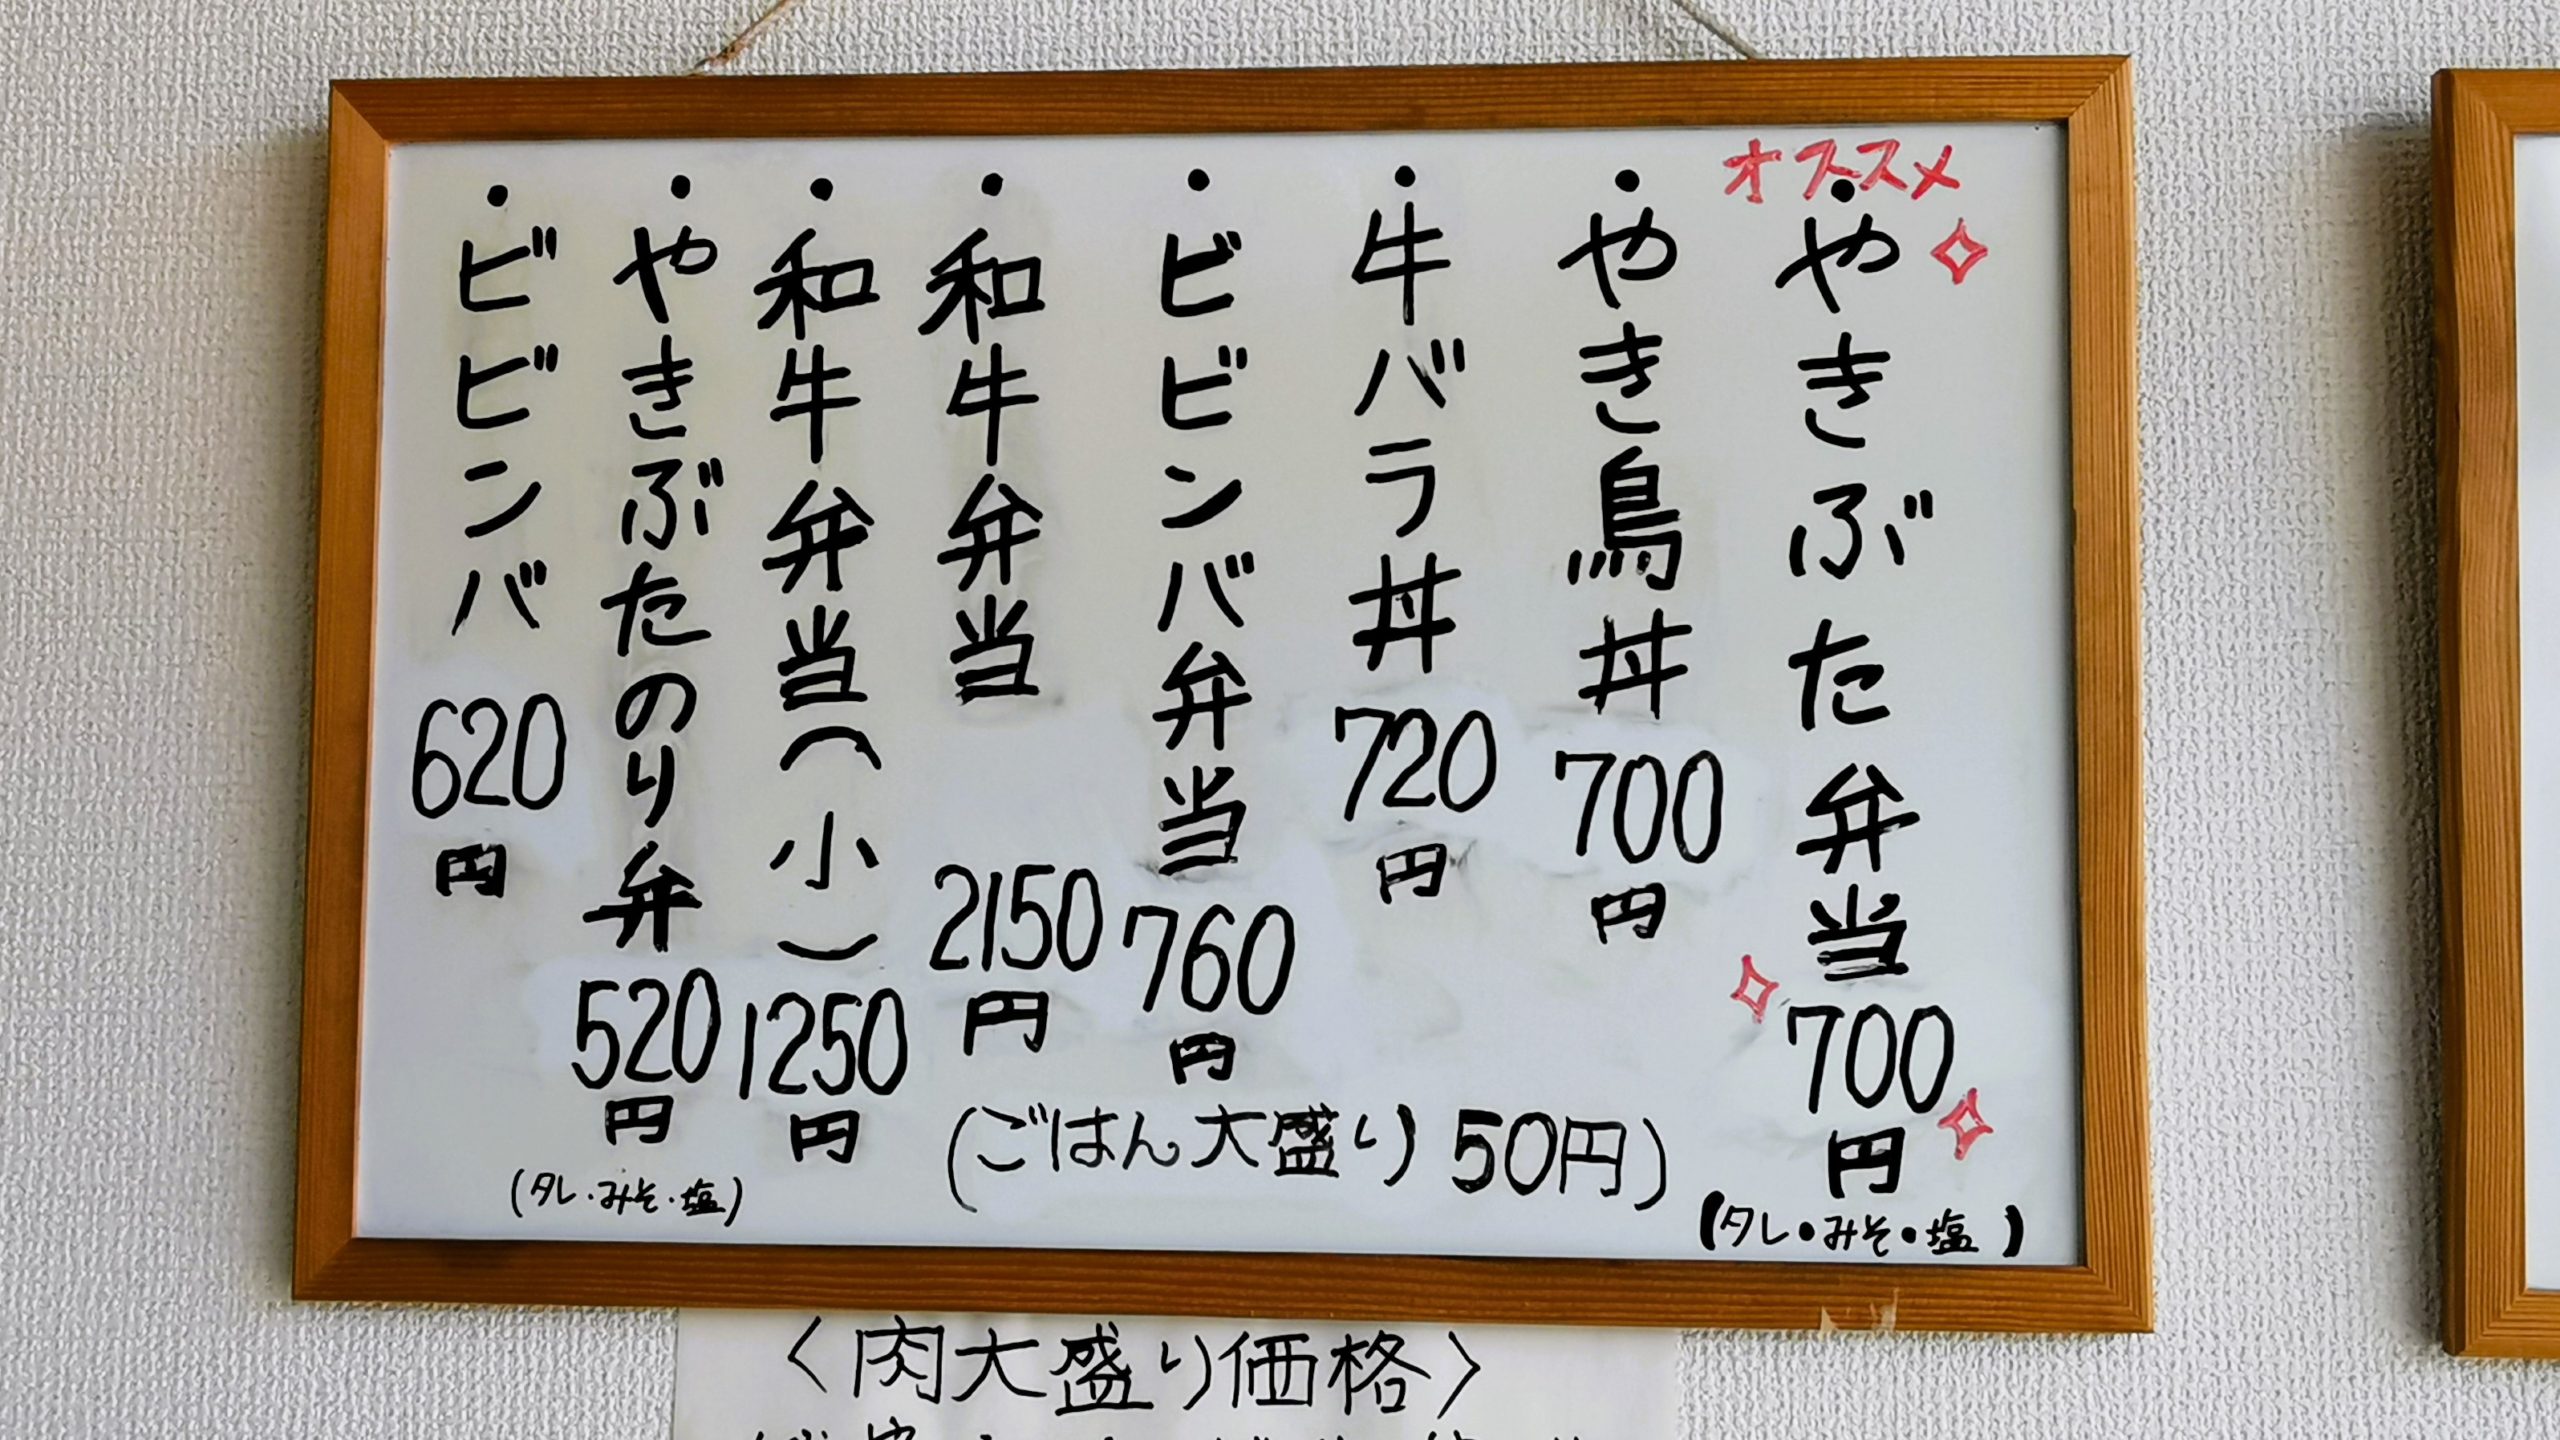 オススメ
・やきぶた弁当 700円
【タレ・みそ・塩】
・やき鳥丼 700円
・牛バラ丼 720円
・ビビンバ弁当 760円
・和牛弁当 2150円
・和牛弁当(小) 1250円
・やきぶたのり弁 520円
(タレ・みそ・塩)
・ビビンバ 620円
(ごはん大盛り 50円)
〈肉大盛り価格〉